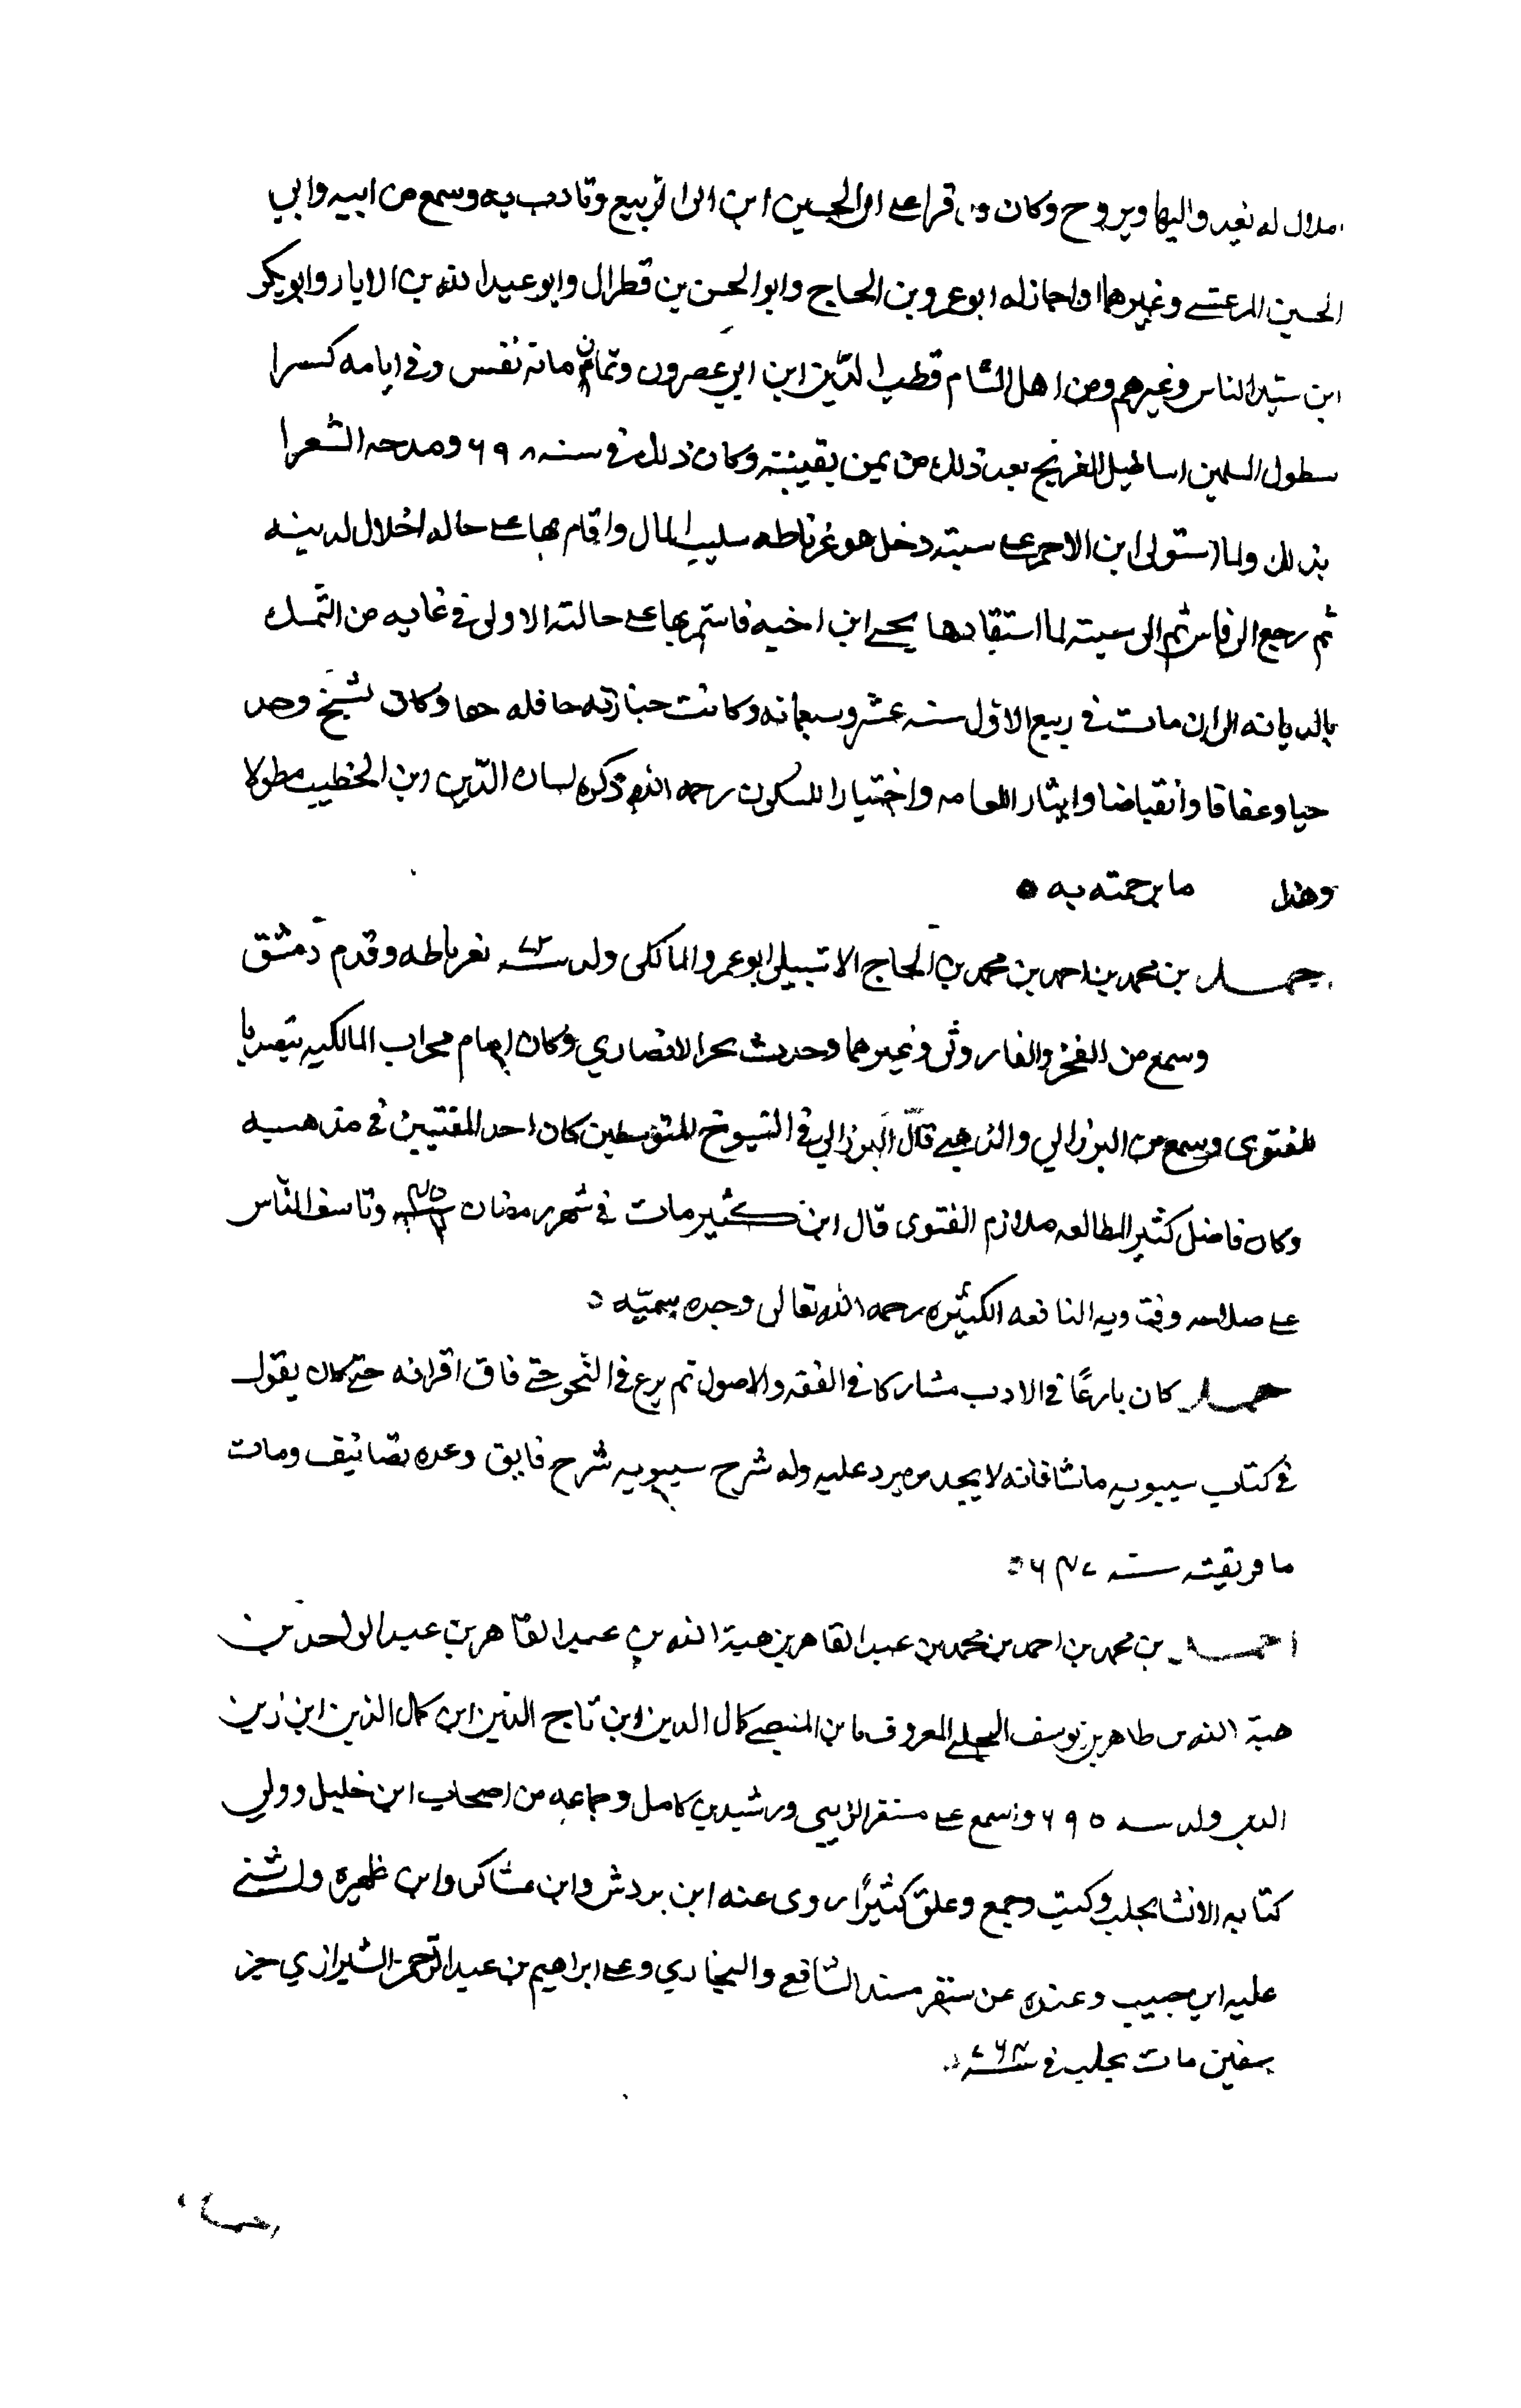 املال له نعيد واليها ويروح وكان قد قرا على ابى الحسين ابن ابى الربيع وتادب به وسمع من ابيه وابي
الحسين المرعشى وغيرهما واجاز له ابو عمرو بن الحاج وابو الحسن بن قطرال وابو عبد الله بن الابار وابو بكر
ابن سيد الناس وغيرهم ومن اهل الشام قطب الدين ابن ابي عصرون وتمام مائة نفس وفي ايامه كسر ا
سطول المسلمين اساطيل الفرنج بعد ذلك من يمن يقينه وكان ذلك في سنه ٦٩٨ ومدحه الشعرا
بذلك ولما استولى ابن الاحمر على سبته دخل هو غرناطه سليب المال واقام بها على حاله اخلال لدينه
ثم رجع الى فاس ثم الى سبته لما استقادها يحيى ابن اخيه فاستمر بها على حالته الاولى في غايه من التمسك
بالديانه الى ان مات في ربيع الاول سنه عشر وسبعمائه وكانت جنازته حافله جدا وكان شيخ وحد
حيا وعفافا وانقباضا وايثار اللعامه واختيارا للسكون رحمه الله ذكره لسان الدين ابن الخطيب مطولا
وهذا ما ترجمته به
احمد بن محمد بن احمد بن محمد بن الحاج الاشبيلى ابو عمرو المالكى ولد سنة بغرناطه وقدم دمشق
وسمع من الفخر والفاروثى وغيرهما وحدث بجزء الانصاري وكان امام محراب المالكيه بتصديا
للفتوى وسمع من البرزالي والذهبي قال البرزالي في الشيوخ المتوسطين كان احد المفتيين في مذهبه
وكان فاضل كثير المطالعه ملازم الفتوى قال ابن كثير مات في شهر رمضان سنة ٧٤٥ وتاسف الناس
على صلاحه وفتاويه النافعه الكثيره رحمه الله تعالى وجده سميّه
احمد كان بارعًا في الادب مشاركا في الفقه والاصول ثم برع في النحو حتى فاق اقرانه حتى كان يقول
في كتاب سيبويه ما شا فانه لا يجد من يرد عليه وله شرح سيبويه شرح فايق وعده تصانيف ومات
بافريقيه سنه ٦٤٧
احمد بن محمد بن احمد بن محمد بن عبد القاهر بن هبة الله بن عبد القاهر بن عبد الواحد بن
هبة الله بن طاهر بن يوسف الحلبي المعروف بابن النصيبي كمال الدين ابن تاج الدين ابن كمال الدين ابن زين
الدين ولد سنه ٦٩٥ واسمع على سنقر الزيني ورشيد بن كامل وجماعه من اصحاب ابن خليل وولي
كتابه الانشا بحلب وكتب وجمع وعلق كثيرًا روى عنه ابن بردس وابن عشاكر وابن ظهيرة واثنى
عليه ابن حبيب وعنده عن سنقر مسند الشافعي والبخاري وعلى ابراهيم بن عبد الرحمن الشيرازي جز
سفين مات بحلب في سنة ٧٦٤
احمد